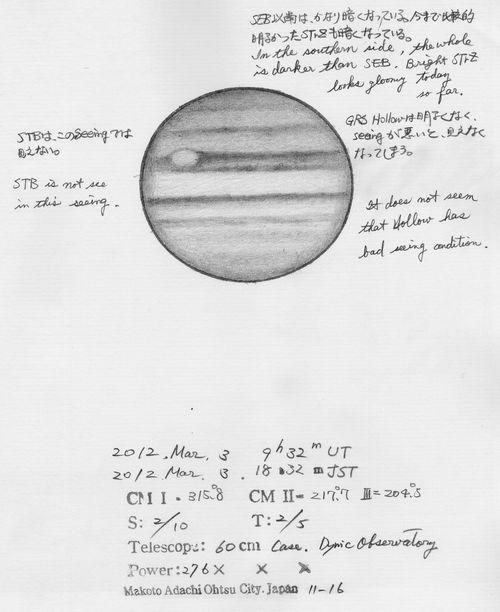 SEB以南は、かなり暗くなっている。今まで比較的
明るかったSTrZも暗くなっている。
In the southern side, the whole
is darker than SEB. Bright STrZ
looks gloomy today
so far.
GRS Hollowは明るくなく、
seeingが悪いと、見えなく
なってしまう。
STBは、このSeeingでは
見えない。
STB is not see
in this seeing.
It does not seem
that Hollow has
bad seeing condition.
2012. Mar. 3 9h 32m UT
2012 Mar. 3. 18 32 m JST
CM I = 315.°8 CM II = 217.°7 III = 204.°5
S: 2/10 T: 2/5
Telescope: 60cm Case. Dynic Observatory
Power: 276× × ×
Makoto Adachi Ohtsu City. Japan 11-16